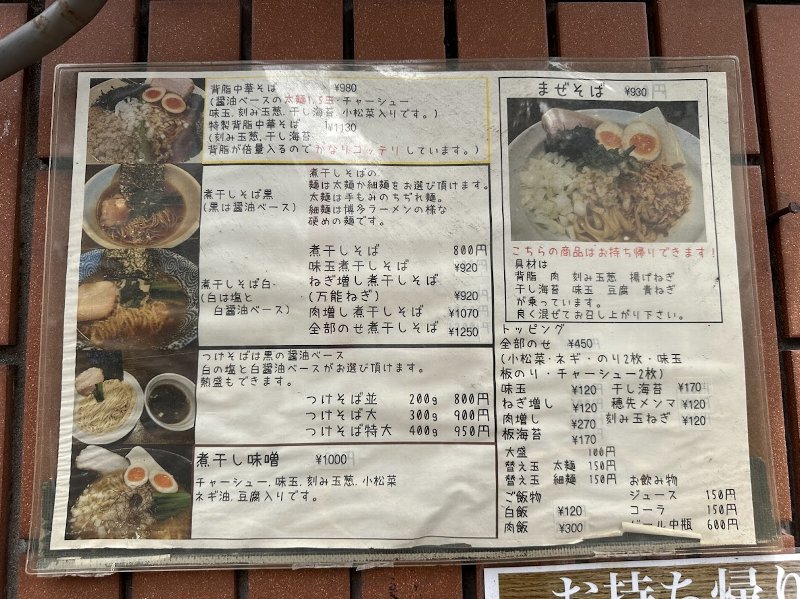 背脂中華そば ¥980
(醤油ベースの太麺1,5玉・チャーシュー
味玉、刻み玉葱、干し海苔、小松菜入りです。)
特製背脂中華そば ¥1130
(刻み玉葱、干し海苔
背脂が倍量入るのでかなりコッテリしています。)
煮干しそば黒
(黒は醤油ベース)
煮干しそばの
麺は太麺か細麺をお選び頂けます。
太麺は手もみのちぢれ麺。
細麺は博多ラーメンの様な
硬めの麺です。
煮干しそば白・
(白は塩と
白醤油ベース)
煮干しそば 800円
味玉煮干しそば ¥920
ねぎ増し煮干しそば
(万能ねぎ) ¥920
肉増し煮干しそば ¥1070
全部のせ煮干しそば ¥1250
つけそばは黒の醤油ベース
白の塩と白醤油ベースがお選び頂けます。
熱盛もできます。
つけそば並 200g 800円
つけそば大 300g 900円
つけそば特大 400g 950円
煮干し味噌 ¥1000
チャーシュー、味玉、刻み玉葱、小松菜
ネギ油、豆腐入りです。
まぜそば ¥930円
こちらの商品はお持ち帰りできます!
具材は
背脂 肉 刻み玉葱 揚げねぎ
干し海苔 味玉 豆腐 青ねぎ
が乗っています。
良く混ぜてお召し上がり下さい。
トッピング
全部のせ ¥450
(小松菜・ネギ・のり2枚・味玉
板のり・チャーシュー2枚)
味玉 ¥120 干し海苔 ¥170
ねぎ増し ¥120 穂先メンマ ¥120
肉増し ¥270 刻み玉ねぎ ¥120
板海苔 ¥170
大盛 100円
替え玉 太麺 150円
替え玉 細麺 150円
ご飯物
白飯 ¥120
肉飯 ¥300
お飲み物
ジュース 150円
コーラ 150円
ビール中瓶 600円
お持ち帰り